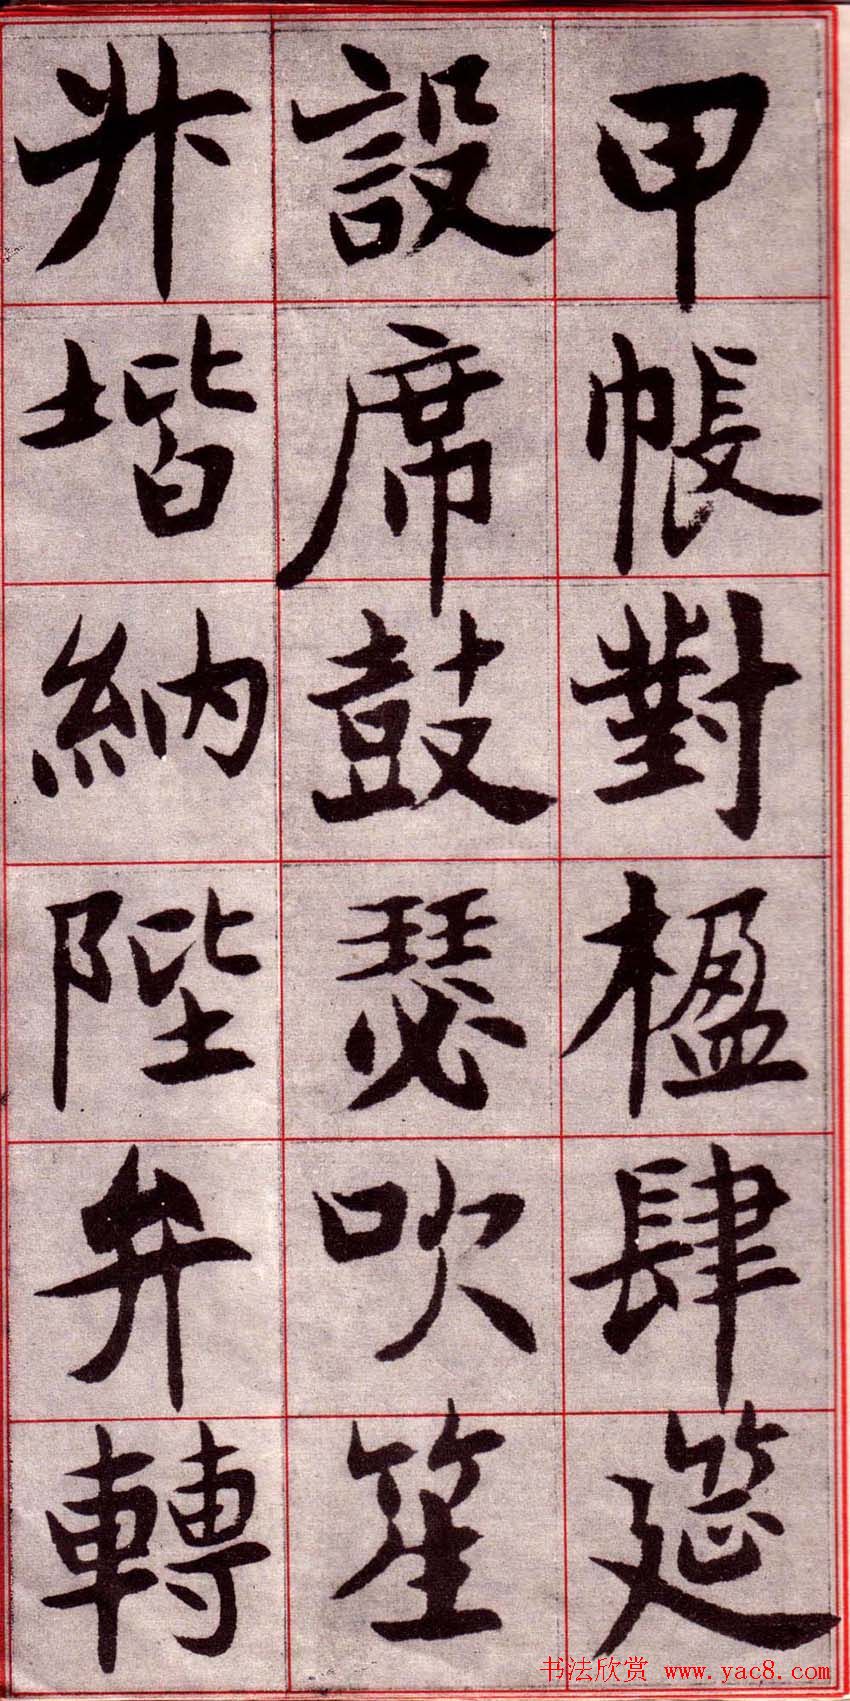 甲帳對楹肆筵
設席鼓瑟吹笙
升堦納陛弁轉
书法欣赏 www.yac8.com